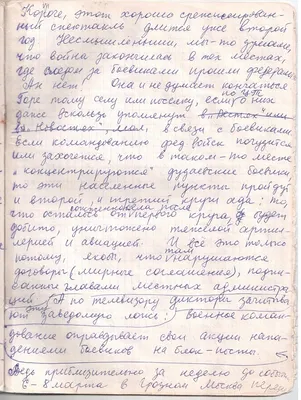 Короче, этот хорошо срежиссирован-
ный спектакль длится уже второй
год. Несмышленыши, мы-то думали,
что война закончилась в тех местах,
где следом за боевиками прошли федералы.
Ан нет! Она и не думает кончаться.
Горе тому селу или поселку, если о них
даже вскользь упомянут в
"Новостях", мол, в связи с боевиками.
Если командованию фед. войск почудится
или захочется, что в таком-то месте
"концентрируются" дудаевские боевики,
то эти населенные пункты пройдут
и второй, и третий круги ада: то,
что осталось от первого круга, будет
добито, уничтожено тяжелой артил-
лерией и авиацией. И все это только
потому, якобы, что там нарушаются
договоры (мирные соглашения), подпи-
санные главами местных администра-
ций. А по телевизору диктора зачитыва-
ют эту заведомую ложь: военное коман-
дование оправдывает свои акции напа-
дением боевиков на блок-посты.
приблизительно за неделю до событий
6-8 марта в Грозном Москва